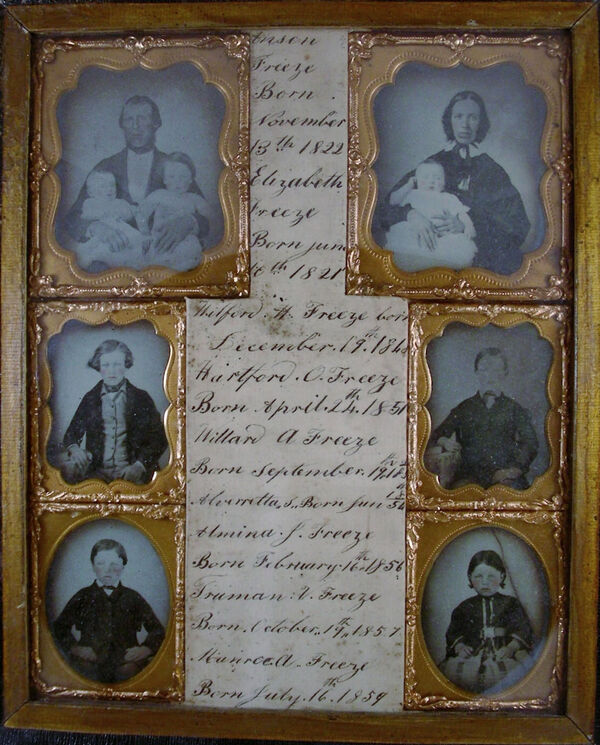 Anson
Freeze
Born
November
13th 1822
Elizabeth
Freeze
Born June
10th 1821
Wilford. H. Freeze born
December. 19th. 184
Hartford. O. Freeze
Born. April. 24th. 1851
Willard A Freeze
Born September. 19th
Alverretta, S. Born Jun
Almina. J. Freeze
Born February. 16th. 1856
Truman. V. Freeze
Born. October. 19th. 1857
Munroe A. Freeze
Born July. 16th. 1859